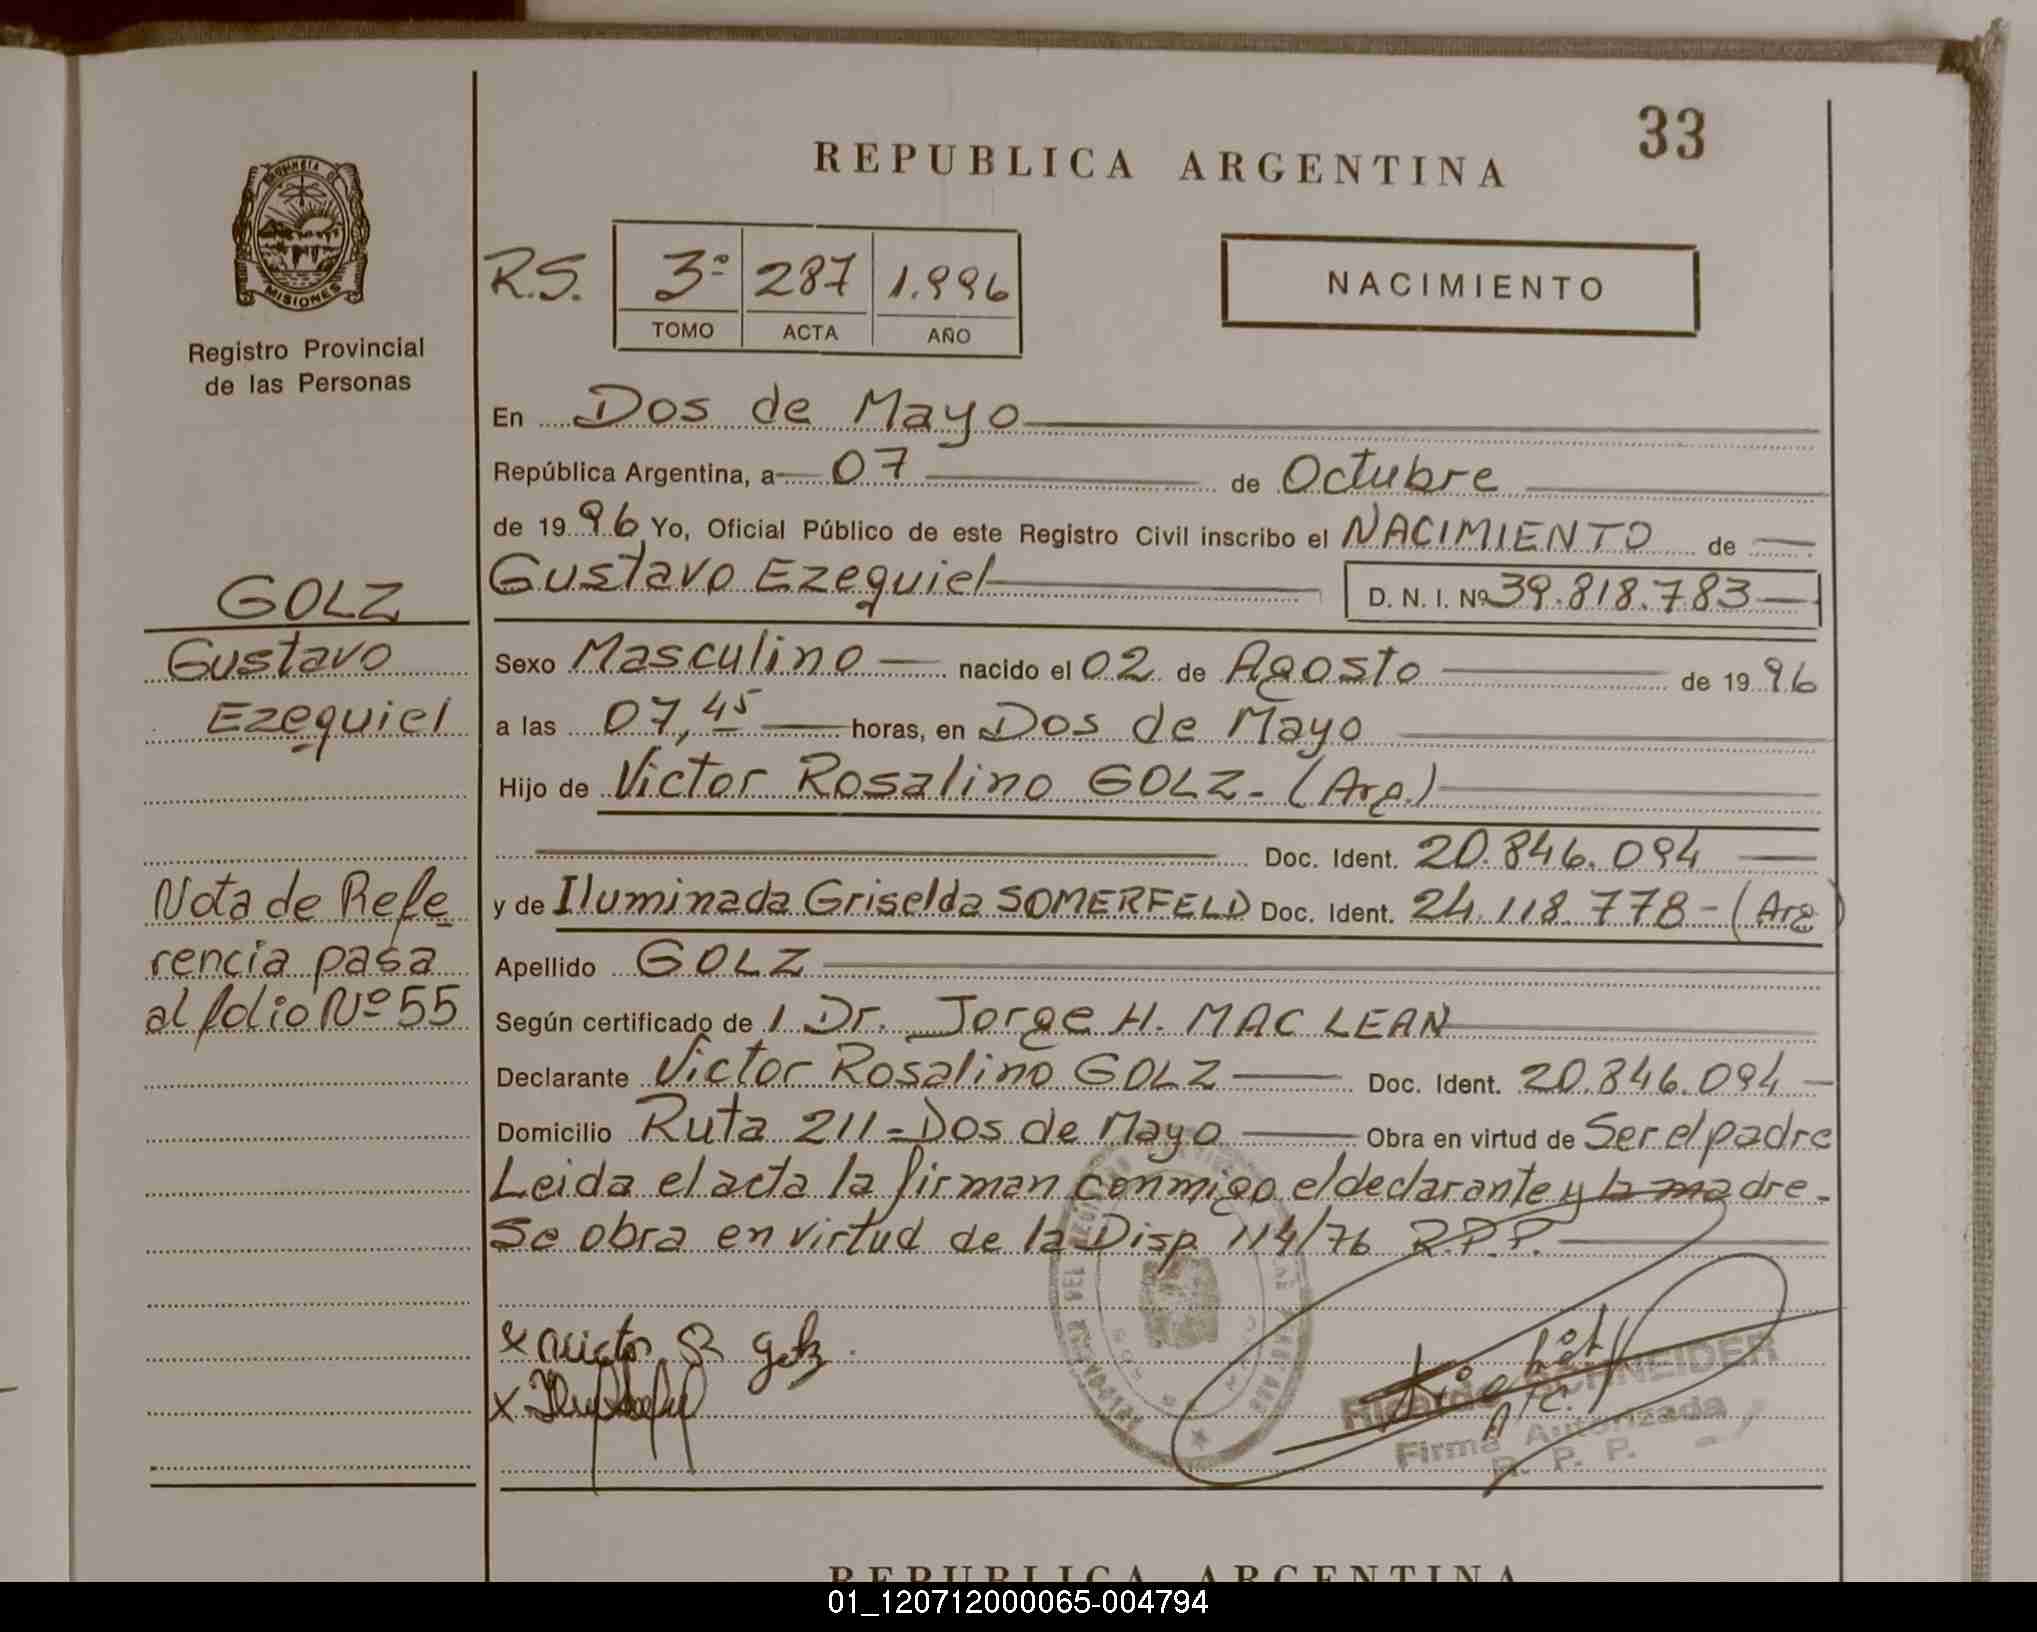 33
REPUBLICA ARGENTINA
PROVINCIA D
MISIONES
Registro Provincial
de las Personas
R.S. 3º 287 1.996
TOMO ACTA AÑO
NACIMIENTO
En Dos de Mayo
República Argentina, a 07 de Octubre
de 1996 Yo, Oficial Público de este Registro Civil inscribo el NACIMIENTO de
Gustavo Ezequiel D. N. I. Nº 39.818.783
GOLZ
Gustavo
Ezequiel
Sexo Masculino nacido el 02 de Agosto de 1996
a las 07,45 horas, en Dos de Mayo
Hijo de Victor Rosalino GOLZ - (Arg.)
Doc. Ident. 20.846.094
y de Iluminada Griselda SOMERFELD Doc. Ident. 24.118.778 - (Arg)
Nota de Refe
rencia pasa
al folio Nº 55
Apellido GOLZ
Según certificado de 1 Dr. Jorge H. MAC LEAN
Declarante Victor Rosalino GOLZ Doc. Ident. 20.846.094
Domicilio Ruta 211 - Dos de Mayo Obra en virtud de Ser el padre
Leida el acta la firman conmigo el declarante y la madre.
Se obra en virtud de la Disp. 114/76 R.P.P.
x Victor R Golz
x
Ricardo SCHNEIDER
Firma Autorizada
R. P. P.
REPUBLICA ARGENTINA
01_120712000065-004794